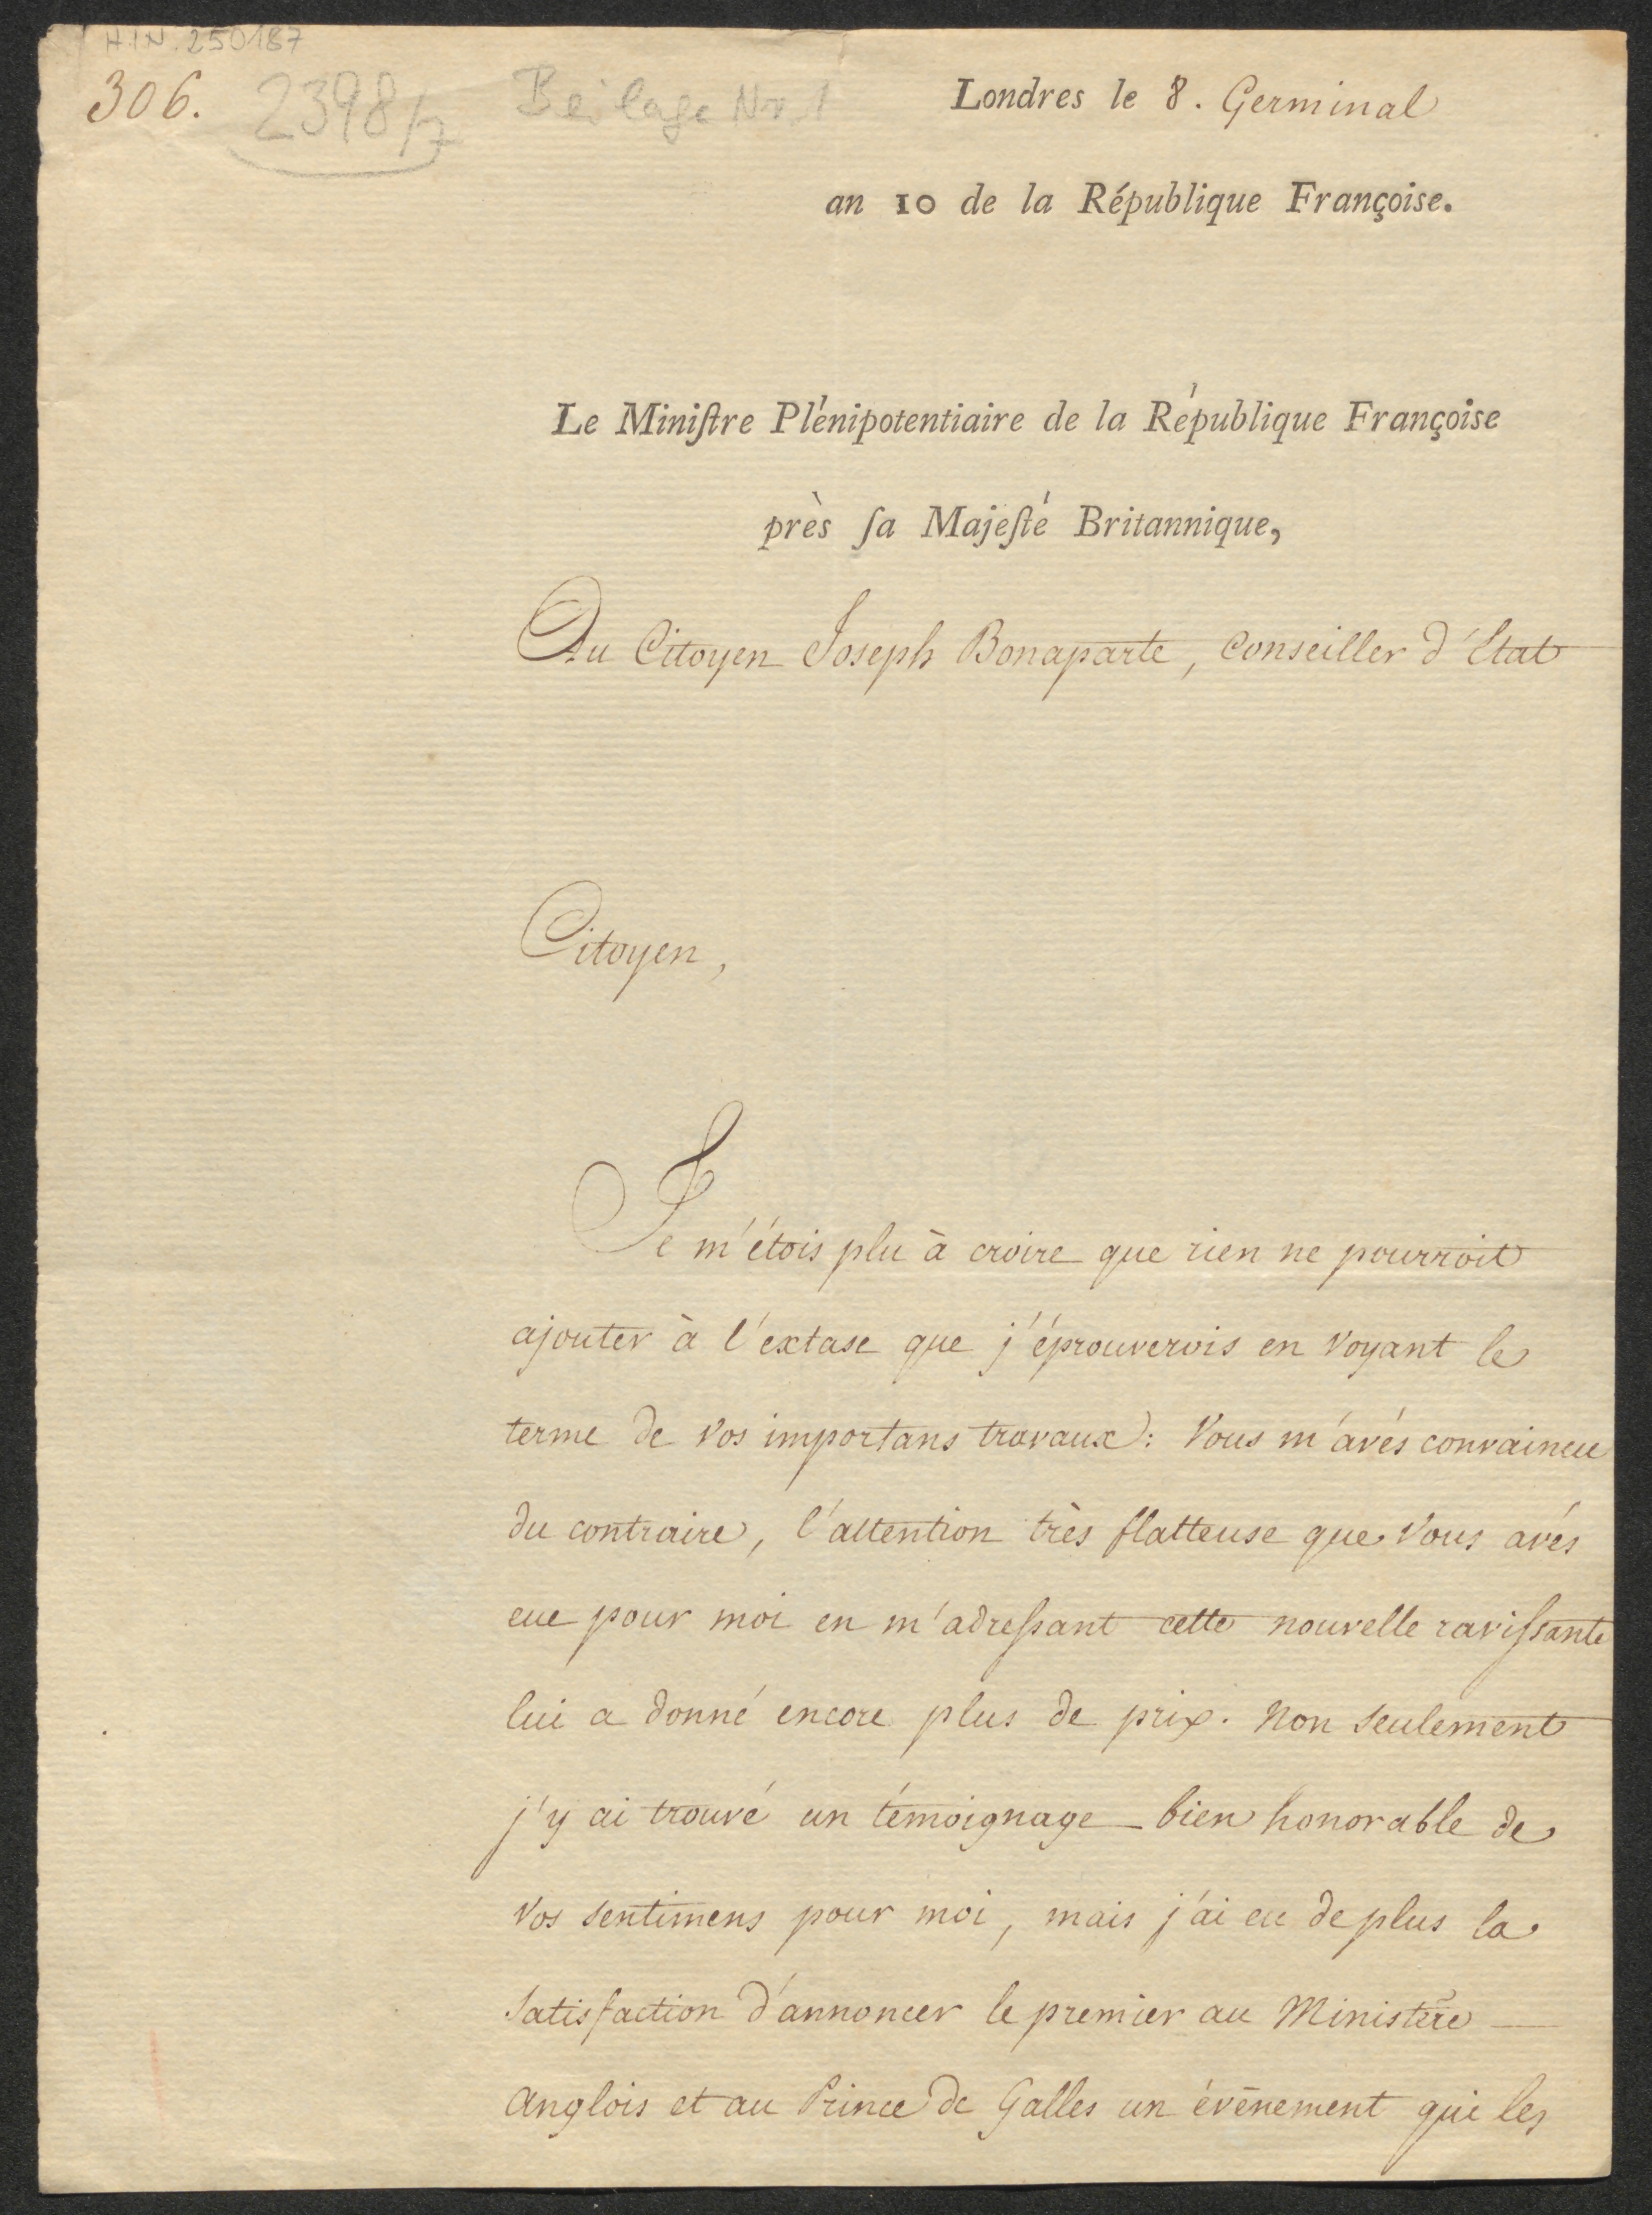 H.I.N. 250187
306. 2398/7 Beilage Nr. 1
Londres le 8. Germinal
an 10 de la République Françoise.
Le Miniſtre Plénipotentiaire de la République Françoise
près ſa Majeſté Britannique,
Au Citoyen Joseph Bonaparte, Conseiller d'Etat
Citoyen,
Je m'étois plu à croire que rien ne pourroit
ajouter à l'extase que j'éprouverois en voyant le
terme de vos importans travaux: Vous m'avés convaincu
du contraire, l'attention très flatteuse que vous avés
eue pour moi en m'adreſsant cette nouvelle raviſsante
lui a donné encore plus de prix. Non seulement
j'y ai trouvé un témoignage bien honorable de
vos sentimens pour moi, mais j'ai eu de plus la
satisfaction d'annoncer le premier au Ministère
Anglois et au Prince de Galles un évènement qui les